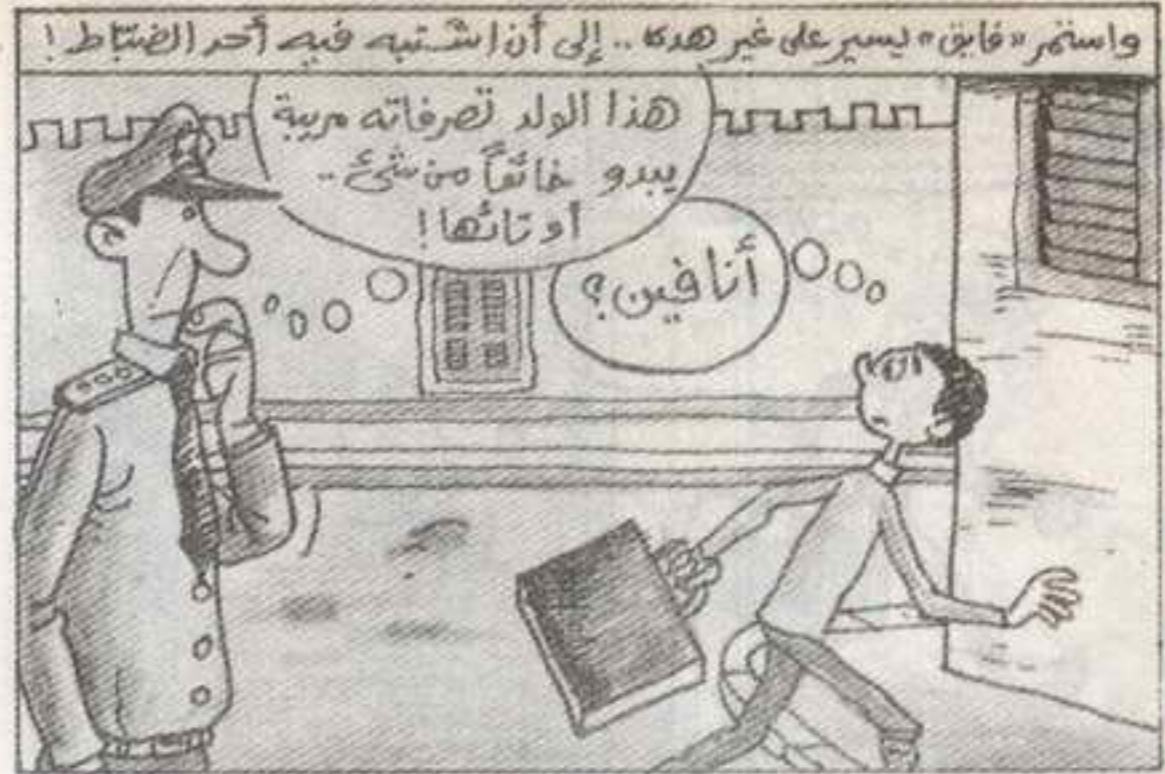 واستمر «فايق» يسير على غير هدى .. إلى أن اشتبه فيه أحد الضباط !
هذا الولد تصرفاته مريبة
يبدو خائفاً من شئ ..
أو تائها !
أنا فين ؟